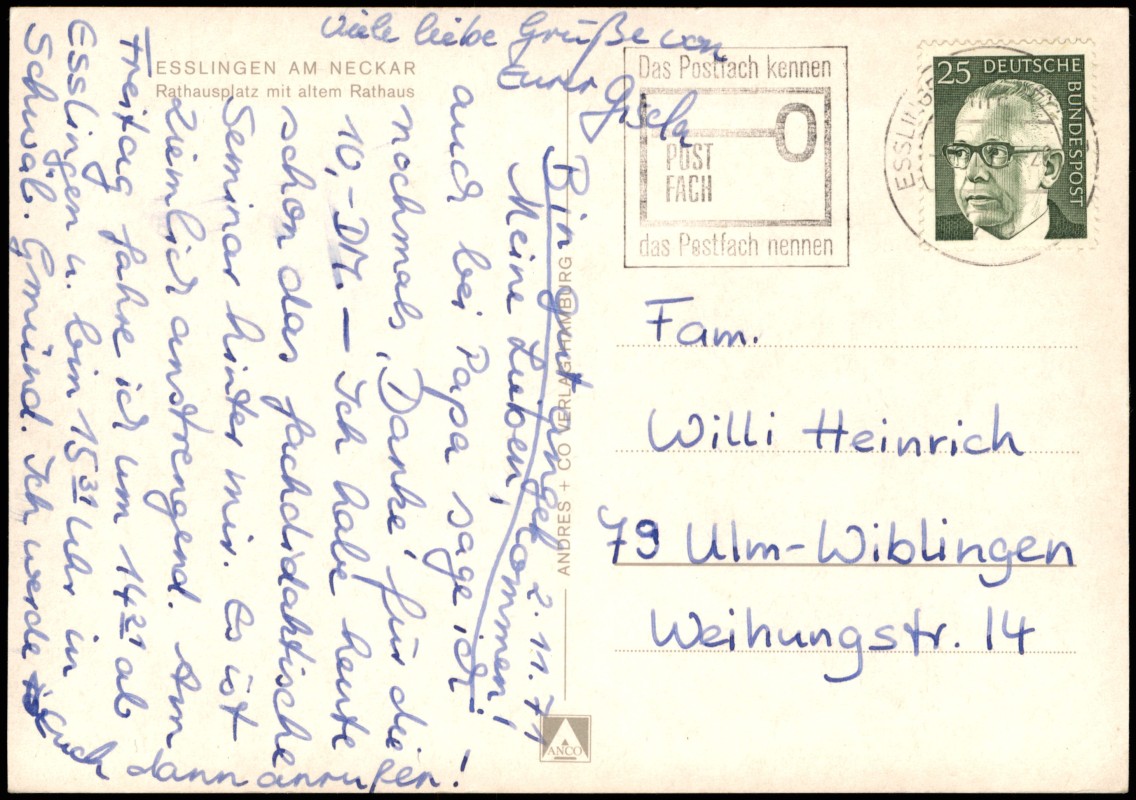 ESSLINGEN AM NECKAR
Rathausplatz mit altem Rathaus
Bin gut angekommen! 2.11.71
Meine Lieben,
auch bei Papa sage ich
nochmals „Danke“ für die
10,-DM. — Ich habe heute
schon das fachdidaktische
Seminar hinter mir. Es ist
ziemlich anstrengend. Am
Freitag fahre ich um 14 21 ab
Esslingen u. bin 15 31 Uhr in
Schwäb. Gmünd. Ich werde
Euch dann anrufen!
Viele liebe Grüße von
Eurer Gisela
ANDRES + CO VERLAG HAMBURG
ANCO
Das Postfach kennen
POST
FACH
das Postfach nennen
ESSLINGEN
25 DEUTSCHE
BUNDESPOST
Fam.
Willi Heinrich
79 Ulm-Wiblingen
Weihungstr. 14